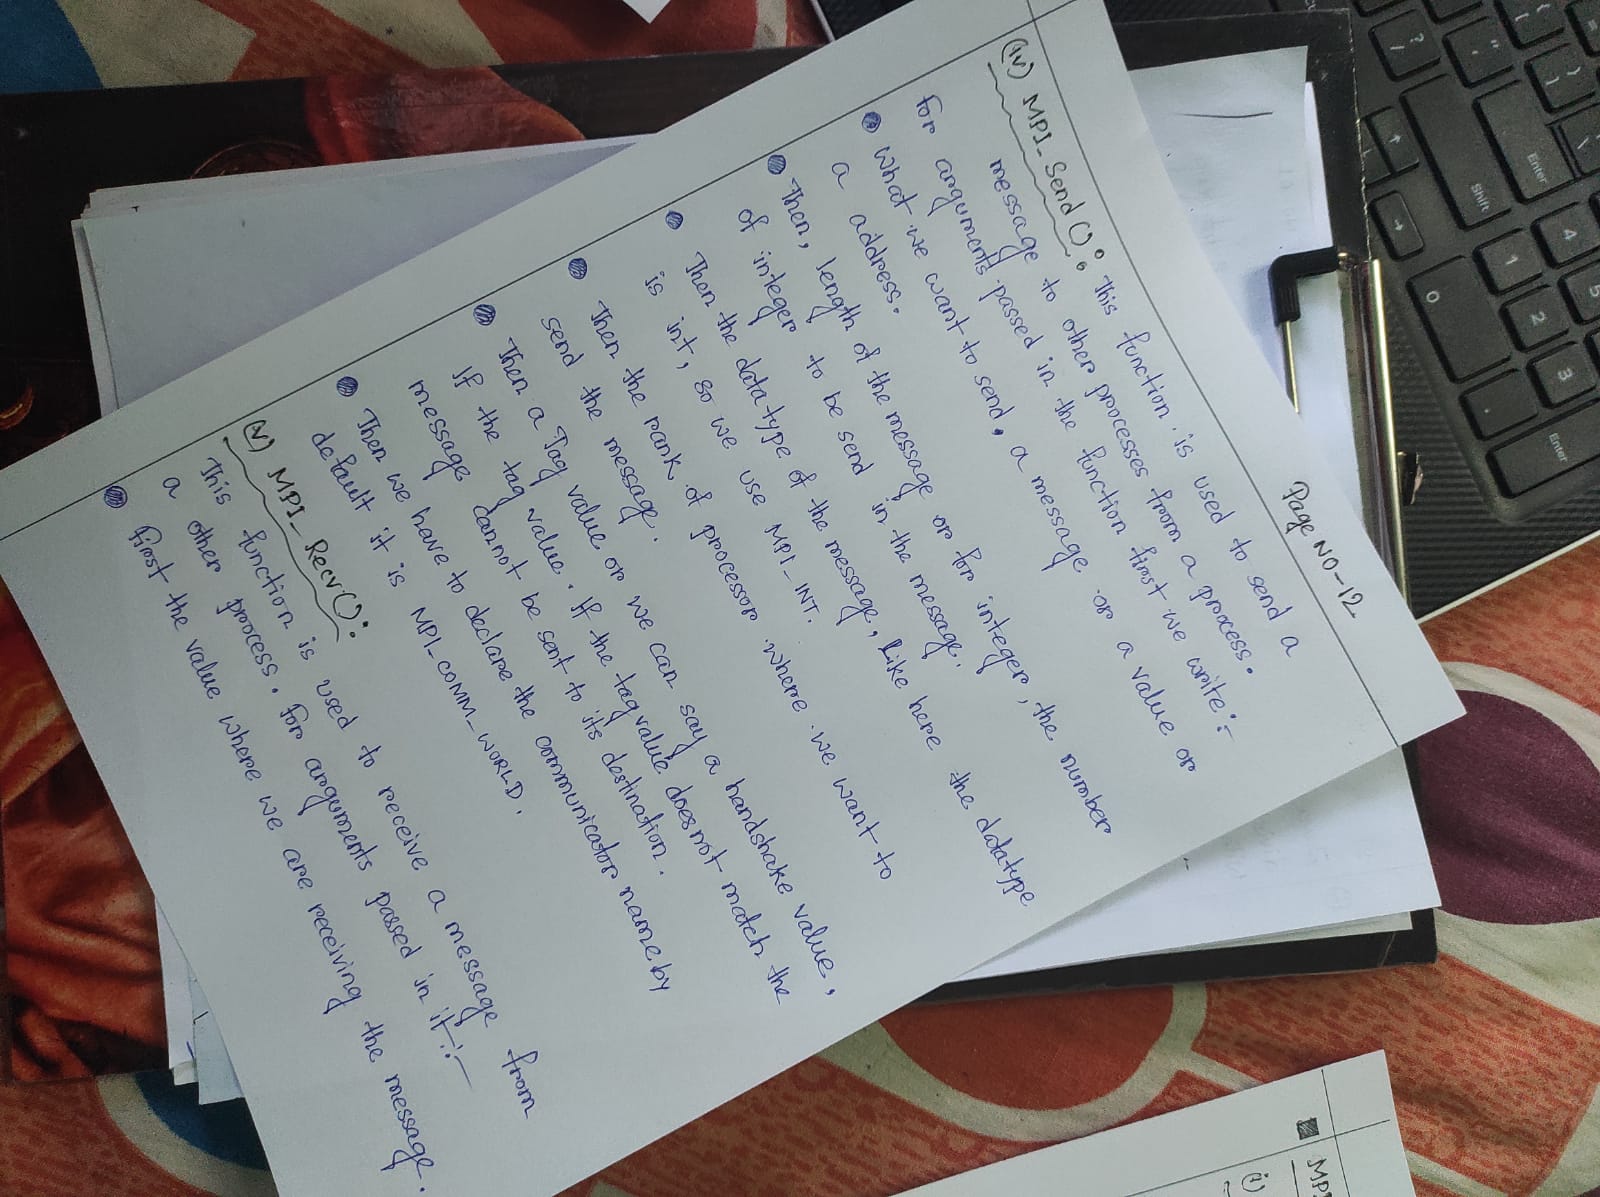 Page NO-12
(iv) MPI_Send():
This function is used to send a
message to other processes from a process.
For arguments passed in the function first we write :-
What we want to send, a message or a value or
a address.
Then, length of the message or for integer, the number
of integer to be send in the message.
Then the data type of the message, Like here the datatype
is int, so we use MPI_INT.
Then the rank of processor where we want to
send the message.
Then a Tag value or we can say a handshake value,
If the tag value. If the tag value does not match the
message cannot be sent to its destination.
Then we have to declare the communicator name by
default it is MPI_COMM_WORLD.
(v) MPI_Recv():
This function is used to receive a message from
a other process. For arguments passed in it :-
First the value where we are receiving the message.
MPI
(i)
Enter
Shift
4
5
1
2
3
0
.
Enter
?
/